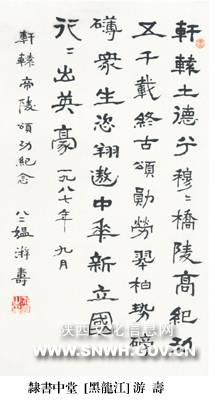 軒轅土德兮穆〻橋陵高紀功
五千載終古頌勛勞翠柏勢磅
礴衆生恣翔遨中華新立國
行〻出英豪 一九八七年九月
軒轅帝陵頌功紀念 八二媪游壽
陕西文化信息网
WWW.SNWH.GOV.CN
隸書中堂 [黑龍江] 游 壽